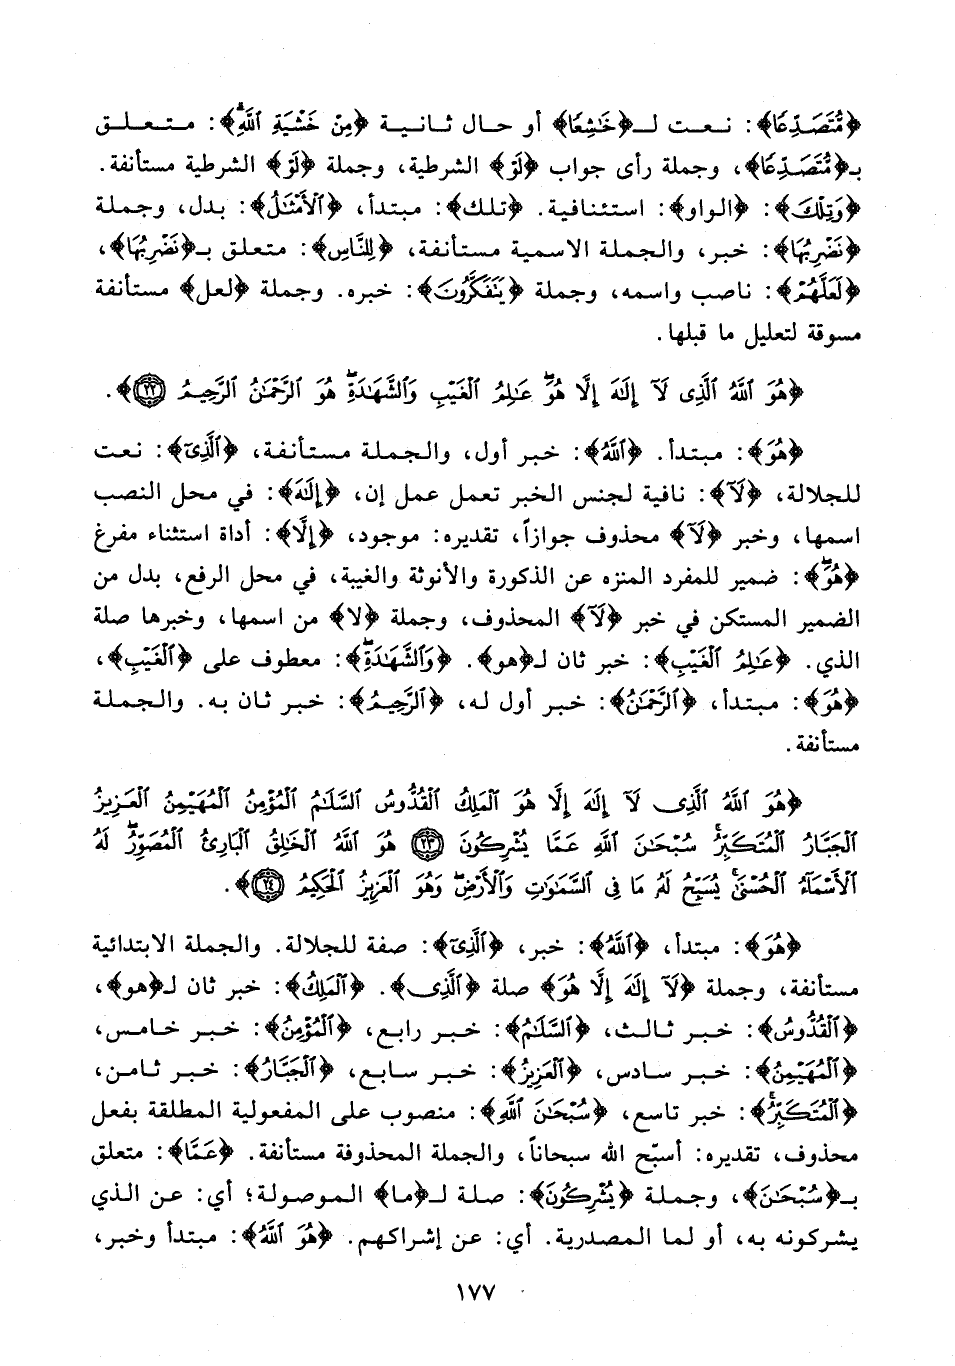 ﴿مُّتَصَدِّعًا﴾: نعت لـ﴿خَٰشِعًا﴾ أو حال ثانية ﴿مِّنْ خَشْيَةِ ٱللَّهِۚ﴾: متعلق
بـ﴿مُّتَصَدِّعًا﴾، وجملة رأى جواب ﴿لَوْ﴾ الشرطية، وجملة ﴿لَوْ﴾ الشرطية مستأنفة.
﴿وَتِلْكَ﴾: ﴿الواو﴾: استئنافية. ﴿تلك﴾: مبتدأ، ﴿ٱلْأَمْثَٰلُ﴾: بدل، وجملة
﴿نَضْرِبُهَا﴾: خبر، والجملة الاسمية مستأنفة، ﴿لِلنَّاسِ﴾: متعلق بـ﴿نَضْرِبُهَا﴾،
﴿لَعَلَّهُمْ﴾: ناصب واسمه، وجملة ﴿يَتَفَكَّرُونَ﴾: خبره. وجملة ﴿لعل﴾ مستأنفة
مسوقة لتعليل ما قبلها.
﴿هُوَ ٱللَّهُ ٱلَّذِى لَآ إِلَٰهَ إِلَّا هُوَۖ عَٰلِمُ ٱلْغَيْبِ وَٱلشَّهَٰدَةِۖ هُوَ ٱلرَّحْمَٰنُ ٱلرَّحِيمُ ٢٢﴾.
﴿هُوَ﴾: مبتدأ. ﴿ٱللَّهُ﴾: خبر أول، والجملة مستأنفة، ﴿ٱلَّذِىٓ﴾: نعت
للجلالة، ﴿لَآ﴾: نافية لجنس الخبر تعمل عمل إن، ﴿إِلَٰهَ﴾: في محل النصب
اسمها، وخبر ﴿لَآ﴾ محذوف جوازاً، تقديره: موجود، ﴿إِلَّا﴾: أداة استثناء مفرغ
﴿هُوَۖ﴾: ضمير للمفرد المنزه عن الذكورة والأنوثة والغيبة، في محل الرفع، بدل من
الضمير المستكن في خبر ﴿لَآ﴾ المحذوف، وجملة ﴿لا﴾ من اسمها، وخبرها صلة
الذي. ﴿عَٰلِمُ ٱلْغَيْبِ﴾: خبر ثان لـ﴿هو﴾. ﴿وَٱلشَّهَٰدَةِۖ﴾: معطوف على ﴿ٱلْغَيْبِ﴾،
﴿هُوَ﴾: مبتدأ، ﴿ٱلرَّحْمَٰنُ﴾: خبر أول له، ﴿ٱلرَّحِيمُ﴾: خبر ثان به. والجملة
مستأنفة.
﴿هُوَ ٱللَّهُ ٱلَّذِى لَآ إِلَٰهَ إِلَّا هُوَ ٱلْمَلِكُ ٱلْقُدُّوسُ ٱلسَّلَٰمُ ٱلْمُؤْمِنُ ٱلْمُهَيْمِنُ ٱلْعَزِيزُ
ٱلْجَبَّارُ ٱلْمُتَكَبِّرُۚ سُبْحَٰنَ ٱللَّهِ عَمَّا يُشْرِكُونَ ٢٣ هُوَ ٱللَّهُ ٱلْخَٰلِقُ ٱلْبَارِئُ ٱلْمُصَوِّرُۖ لَهُ
ٱلْأَسْمَآءُ ٱلْحُسْنَىٰۚ يُسَبِّحُ لَهُۥ مَا فِى ٱلسَّمَٰوَٰتِ وَٱلْأَرْضِۖ وَهُوَ ٱلْعَزِيزُ ٱلْحَكِيمُ ٢٤﴾.
﴿هُوَ﴾: مبتدأ، ﴿ٱللَّهُ﴾: خبر، ﴿ٱلَّذِىٓ﴾: صفة للجلالة. والجملة الابتدائية
مستأنفة، وجملة ﴿لَآ إِلَٰهَ إِلَّا هُوَ﴾ صلة ﴿ٱلَّذِى﴾. ﴿ٱلْمَلِكُ﴾: خبر ثان لـ﴿هو﴾،
﴿ٱلْقُدُّوسُ﴾: خبر ثالث، ﴿ٱلسَّلَٰمُ﴾: خبر رابع، ﴿ٱلْمُؤْمِنُ﴾: خبر خامس،
﴿ٱلْمُهَيْمِنُ﴾: خبر سادس، ﴿ٱلْعَزِيزُ﴾: خبر سابع، ﴿ٱلْجَبَّارُ﴾: خبر ثامن،
﴿ٱلْمُتَكَبِّرُۚ﴾: خبر تاسع، ﴿سُبْحَٰنَ ٱللَّهِ﴾: منصوب على المفعولية المطلقة بفعل
محذوف، تقديره: أسبّح الله سبحاناً، والجملة المحذوفة مستأنفة. ﴿عَمَّا﴾: متعلق
بـ﴿سُبْحَٰنَ﴾، وجملة ﴿يُشْرِكُونَ﴾: صلة لـ﴿ما﴾ الموصولة؛ أي: عن الذي
يشركونه به، أو لما المصدرية. أي: عن إشراكهم. ﴿هُوَ ٱللَّهُ﴾: مبتدأ وخبر،
١٧٧